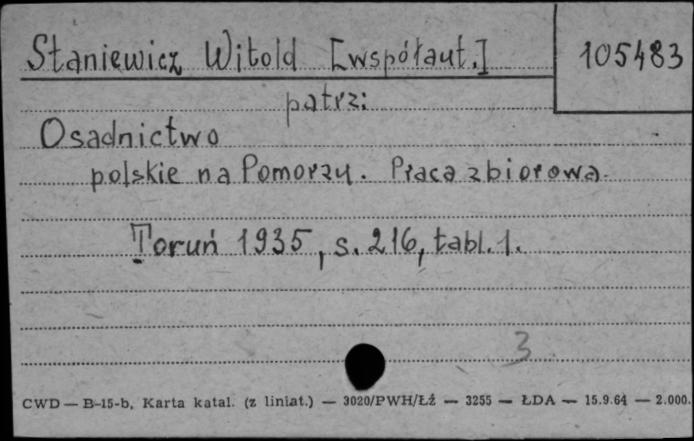 Staniewicz Witold [współaut.] 105483
patrz:
Osadnictwo
polskie na Pomorzu. Praca zbiorowa.
Toruń 1935, s. 216, tabl. 1.
3
CWD — B-15-b, Karta katal. (z liniat.) — 3020/PWH/Łź — 3255 — ŁDA — 15.9.64 — 2.000.